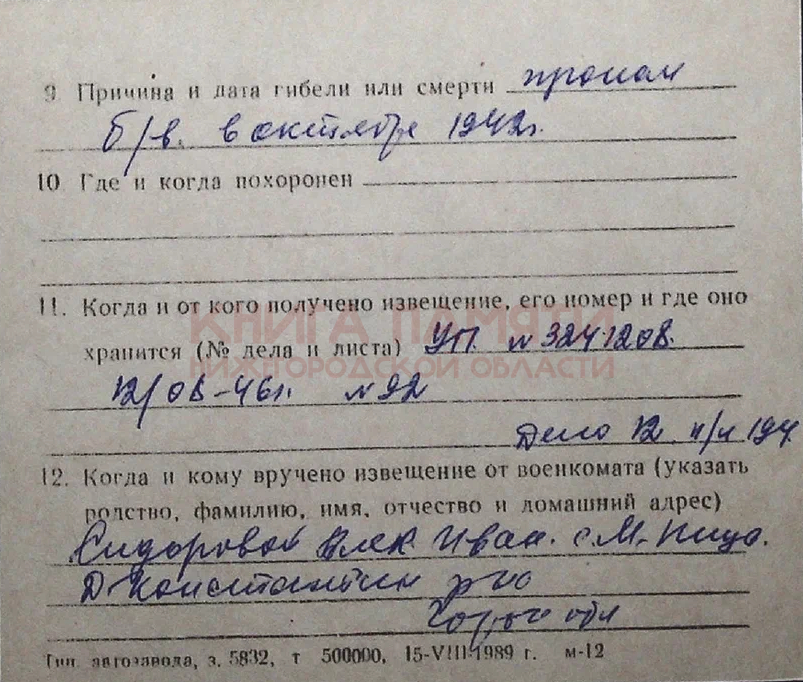 9. Причина и дата гибели или смерти пропал
б/в. в октябре 1942г.
10. Где и когда похоронен
11. Когда и от кого получено извещение, его номер и где оно
КНИГА ПАМЯТИ
хранится (№ дела и листа) УП. №3241208.
НИЖЕГОРОДСКОЙ ОБЛАСТИ
12/08-46г. №92
Дело 12 н/ч 194
12. Когда и кому вручено извещение от военкомата (указать
родство, фамилию, имя, отчество и домашний адрес)
Сидоровой Алек. Иван. с. М-Пица.
Д-Константин р-но
Горьк обл
Тип. автозавода, з. 5832, т 500000, 15-VIII-1989 г. м-12